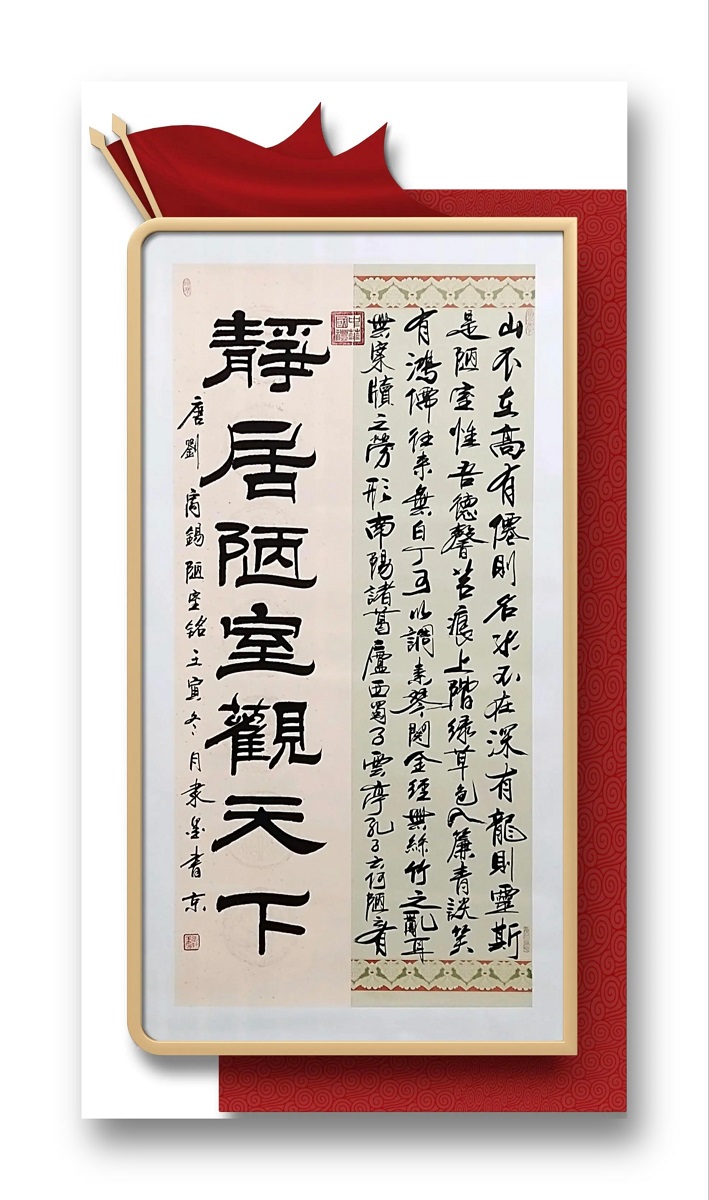 山不在高有僊則名水不在深有龍則靈斯
是陋室惟吾德馨苔痕上階绿草色入簾青談笑
有鴻儒往来無白丁可以調素琴閱金經無絲竹之亂耳
無案牘之勞形南陽諸葛廬西蜀子雲亭孔子云何陋之有
中華國禮
靜居陋室觀天下
唐劉禹錫陋室銘壬寅冬月隶墨書京